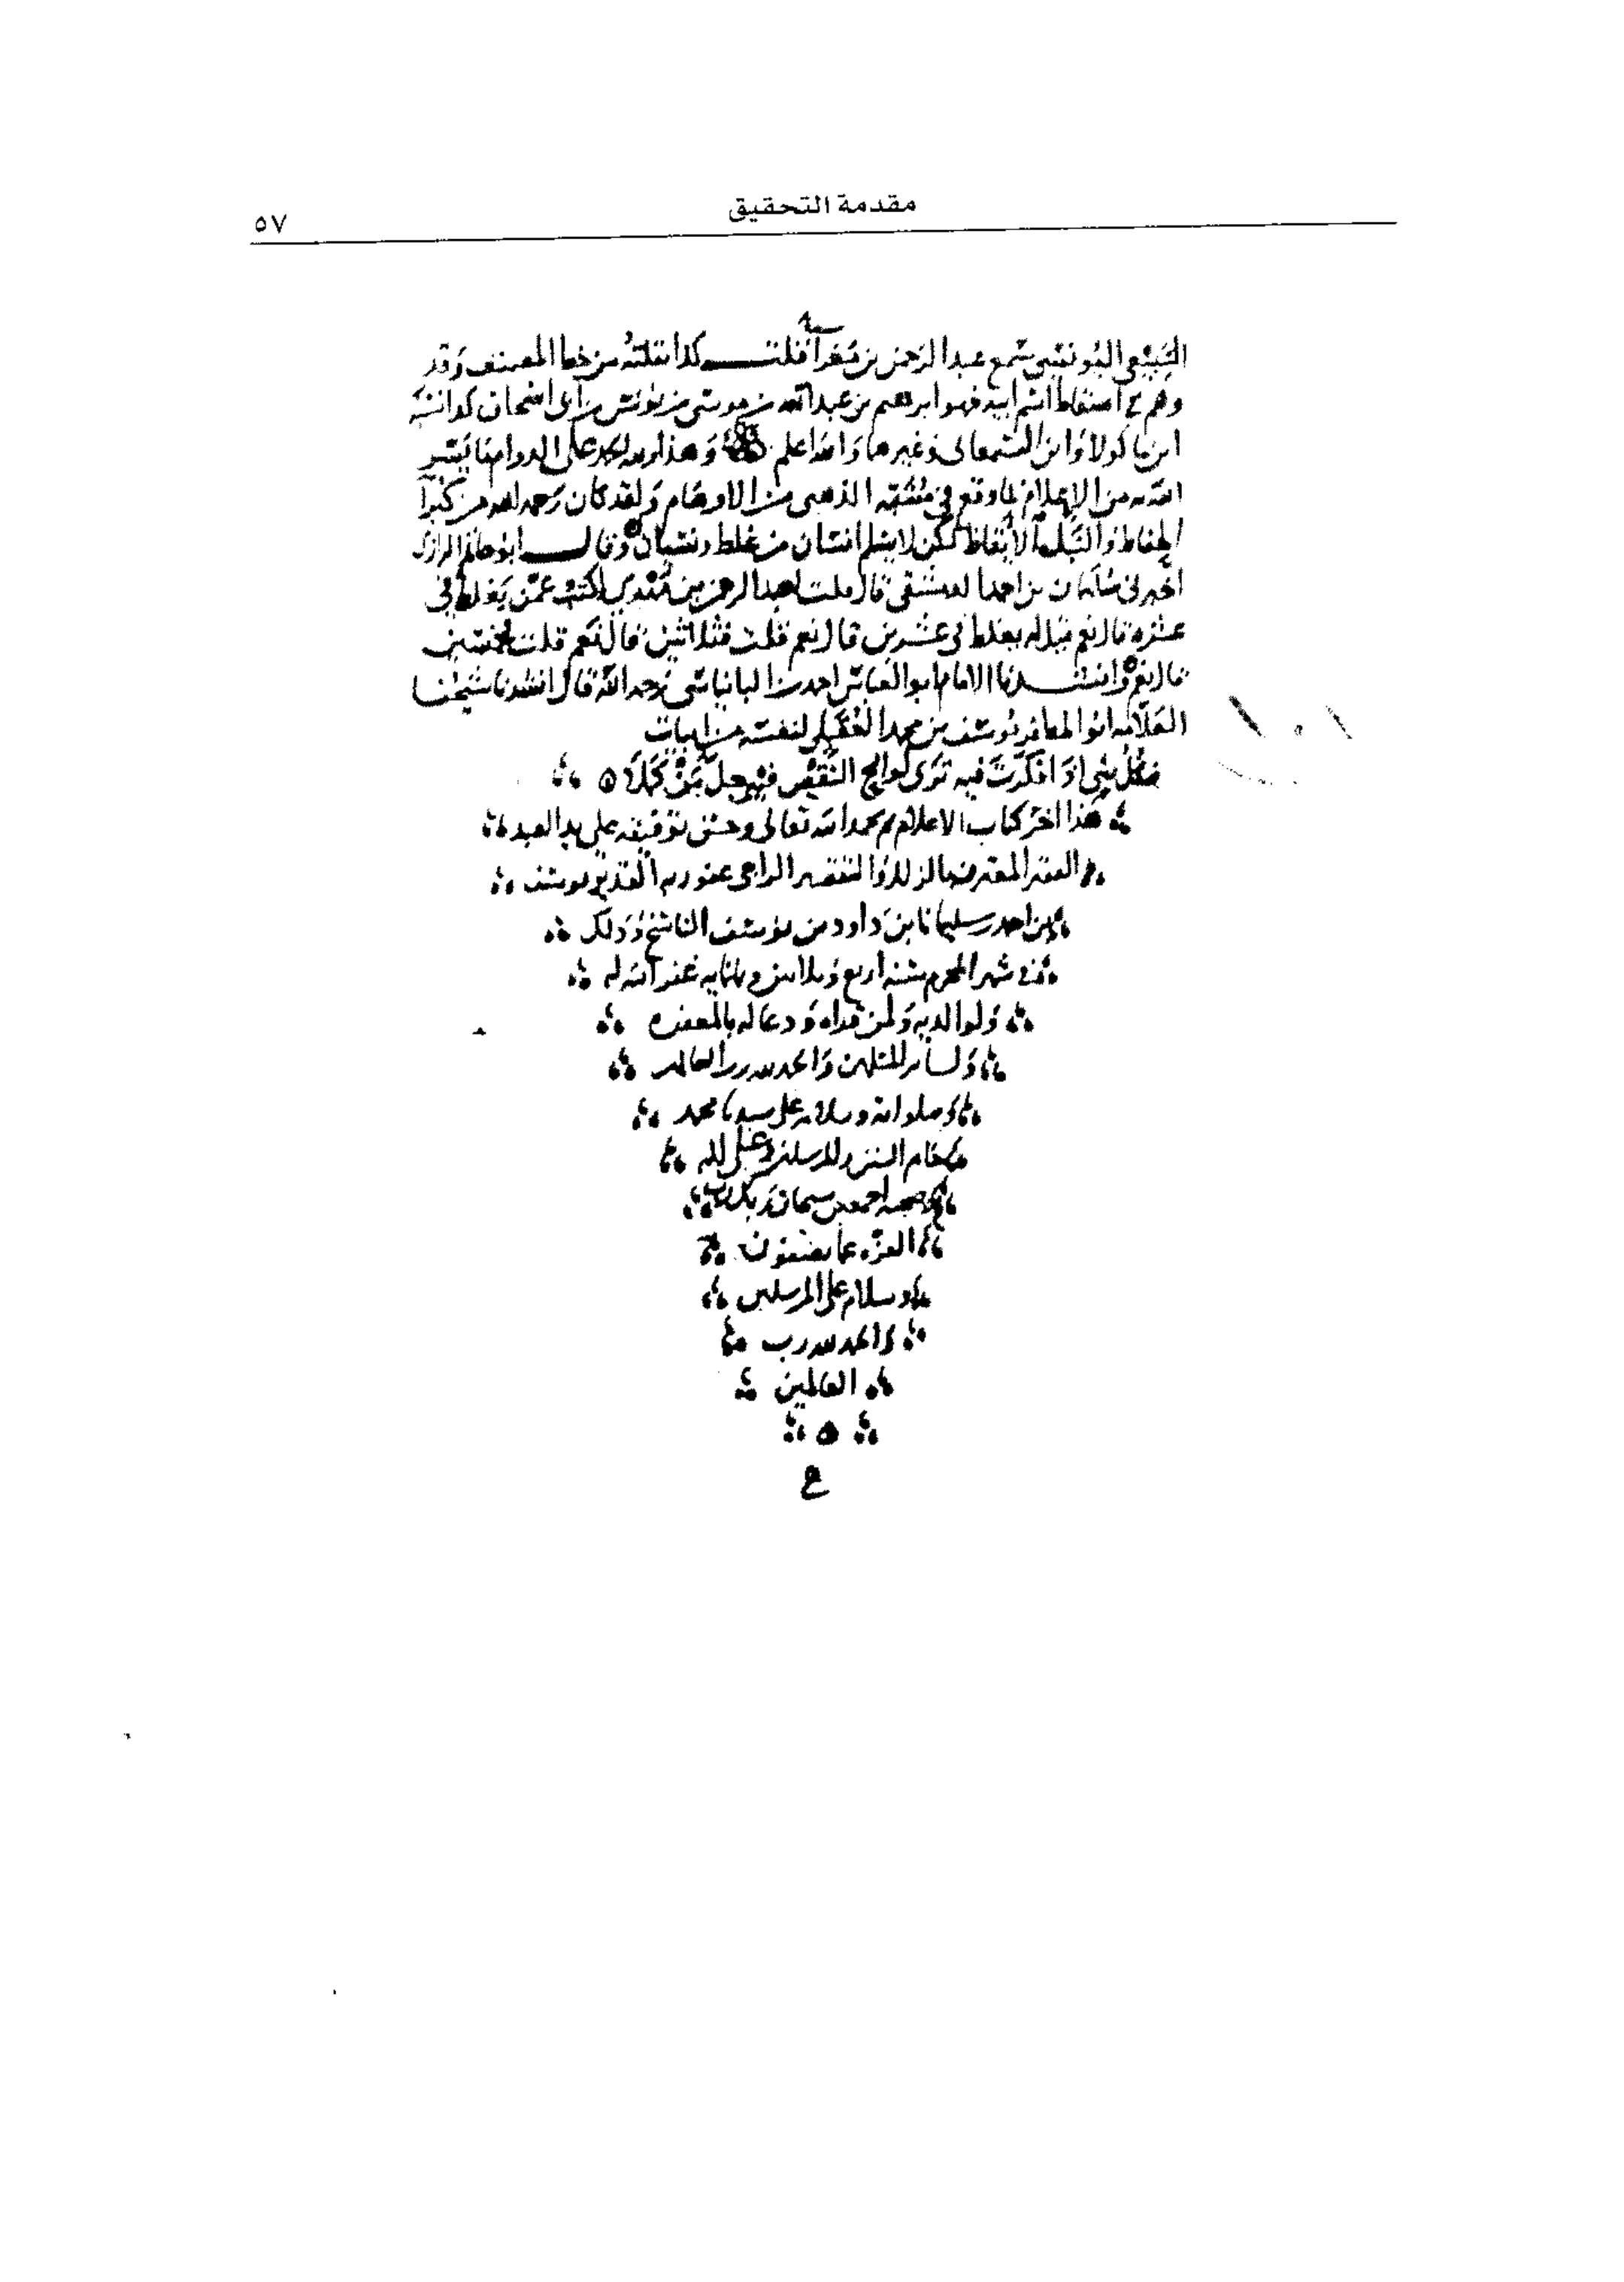 مقدمة التحقيق
٥٧
السبيعي اليونسي سمع عبد الرحمن بن مغرا قلت كذا نقلته من خط المصنف وقد
وهم في اسقاط اسم ابيه فهو ابرهيم بن عبد الله بن موسى بن يونس بن ابي اسحاق كذا نسبه
ابن ماكولا وابن السمعاني وغيرهما والله اعلم وهذا ولله الحمد على الدوام ما يسر
الله من الاعلام لما وقع في مشتبه الذهبي من الاوهام ولقد كان رحمه الله من كبرآ
الحفاظ والنبلآ الأيقاظ لكن لا يسلم انسان من غلط ونسيان وقال ابو حاتم الرازي
اخبرني سليمان بن احمد الدمشقي قال قلت لعبد الرحمن بن مهدي اكتب عمن يغلط في
عشره قال نعم قيل له يغلط في عشرين قال نعم قلت فثلاثين قال نعم قلت فخمسين
قال نعم وانشدنا الامام ابو العباس احمد البانياسي رحمه الله قال انشدنا شيخنا
العلامه ابو المظفر يوسف بن محمد العقيلي لنفسه من ابيات
فكل شي اذا فكرت فيه ترى لوايح النقص فيه جل من كملا ه
هذا اخر كتاب الاعلام بحمد الله تعالى وحسن توفيقه على يد العبد
الفقير المعترف بالزلل والتقصير الراجي عفو ربه القدير يوسف
بن احمد بن سليمان بن داود بن يوسف الناسخ وذلك
في شهر المحرم سنة اربع وثلاثين وثمانيه غفر الله له
ولوالديه ولمن قراه ودعا له بالمغفره
ولسائر المسلمين والحمد لله رب العالمين
وصلواته وسلامه على سيدنا محمد
خاتم النبيين والمرسلين وعلى اله
وصحبه اجمعين سبحان ربك رب
العزه عما يصفون
وسلام على المرسلين
والحمد لله رب
العالمين
ه
ع